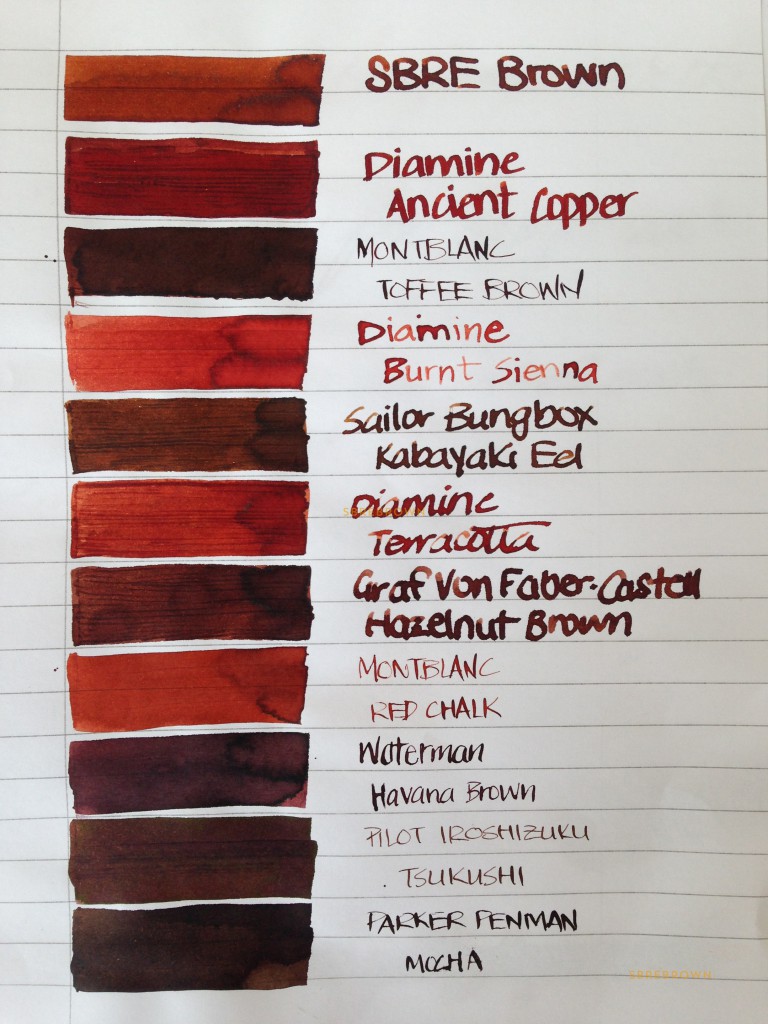 SBRE Brown
Diamine
Ancient Copper
MONTBLANC
TOFFEE BROWN
Diamine
Burnt Sienna
Sailor Bungbox
Kabayaki Eel
Diamine
SBREBROWN
Terracotta
Graf Von Faber-Castell
Hazelnut Brown
MONTBLANC
RED CHALK
Waterman
Havana Brown
PILOT IROSHIZUKU
. TSUKUSHI
PARKER PENMAN
MOCHA
SBREBROWN